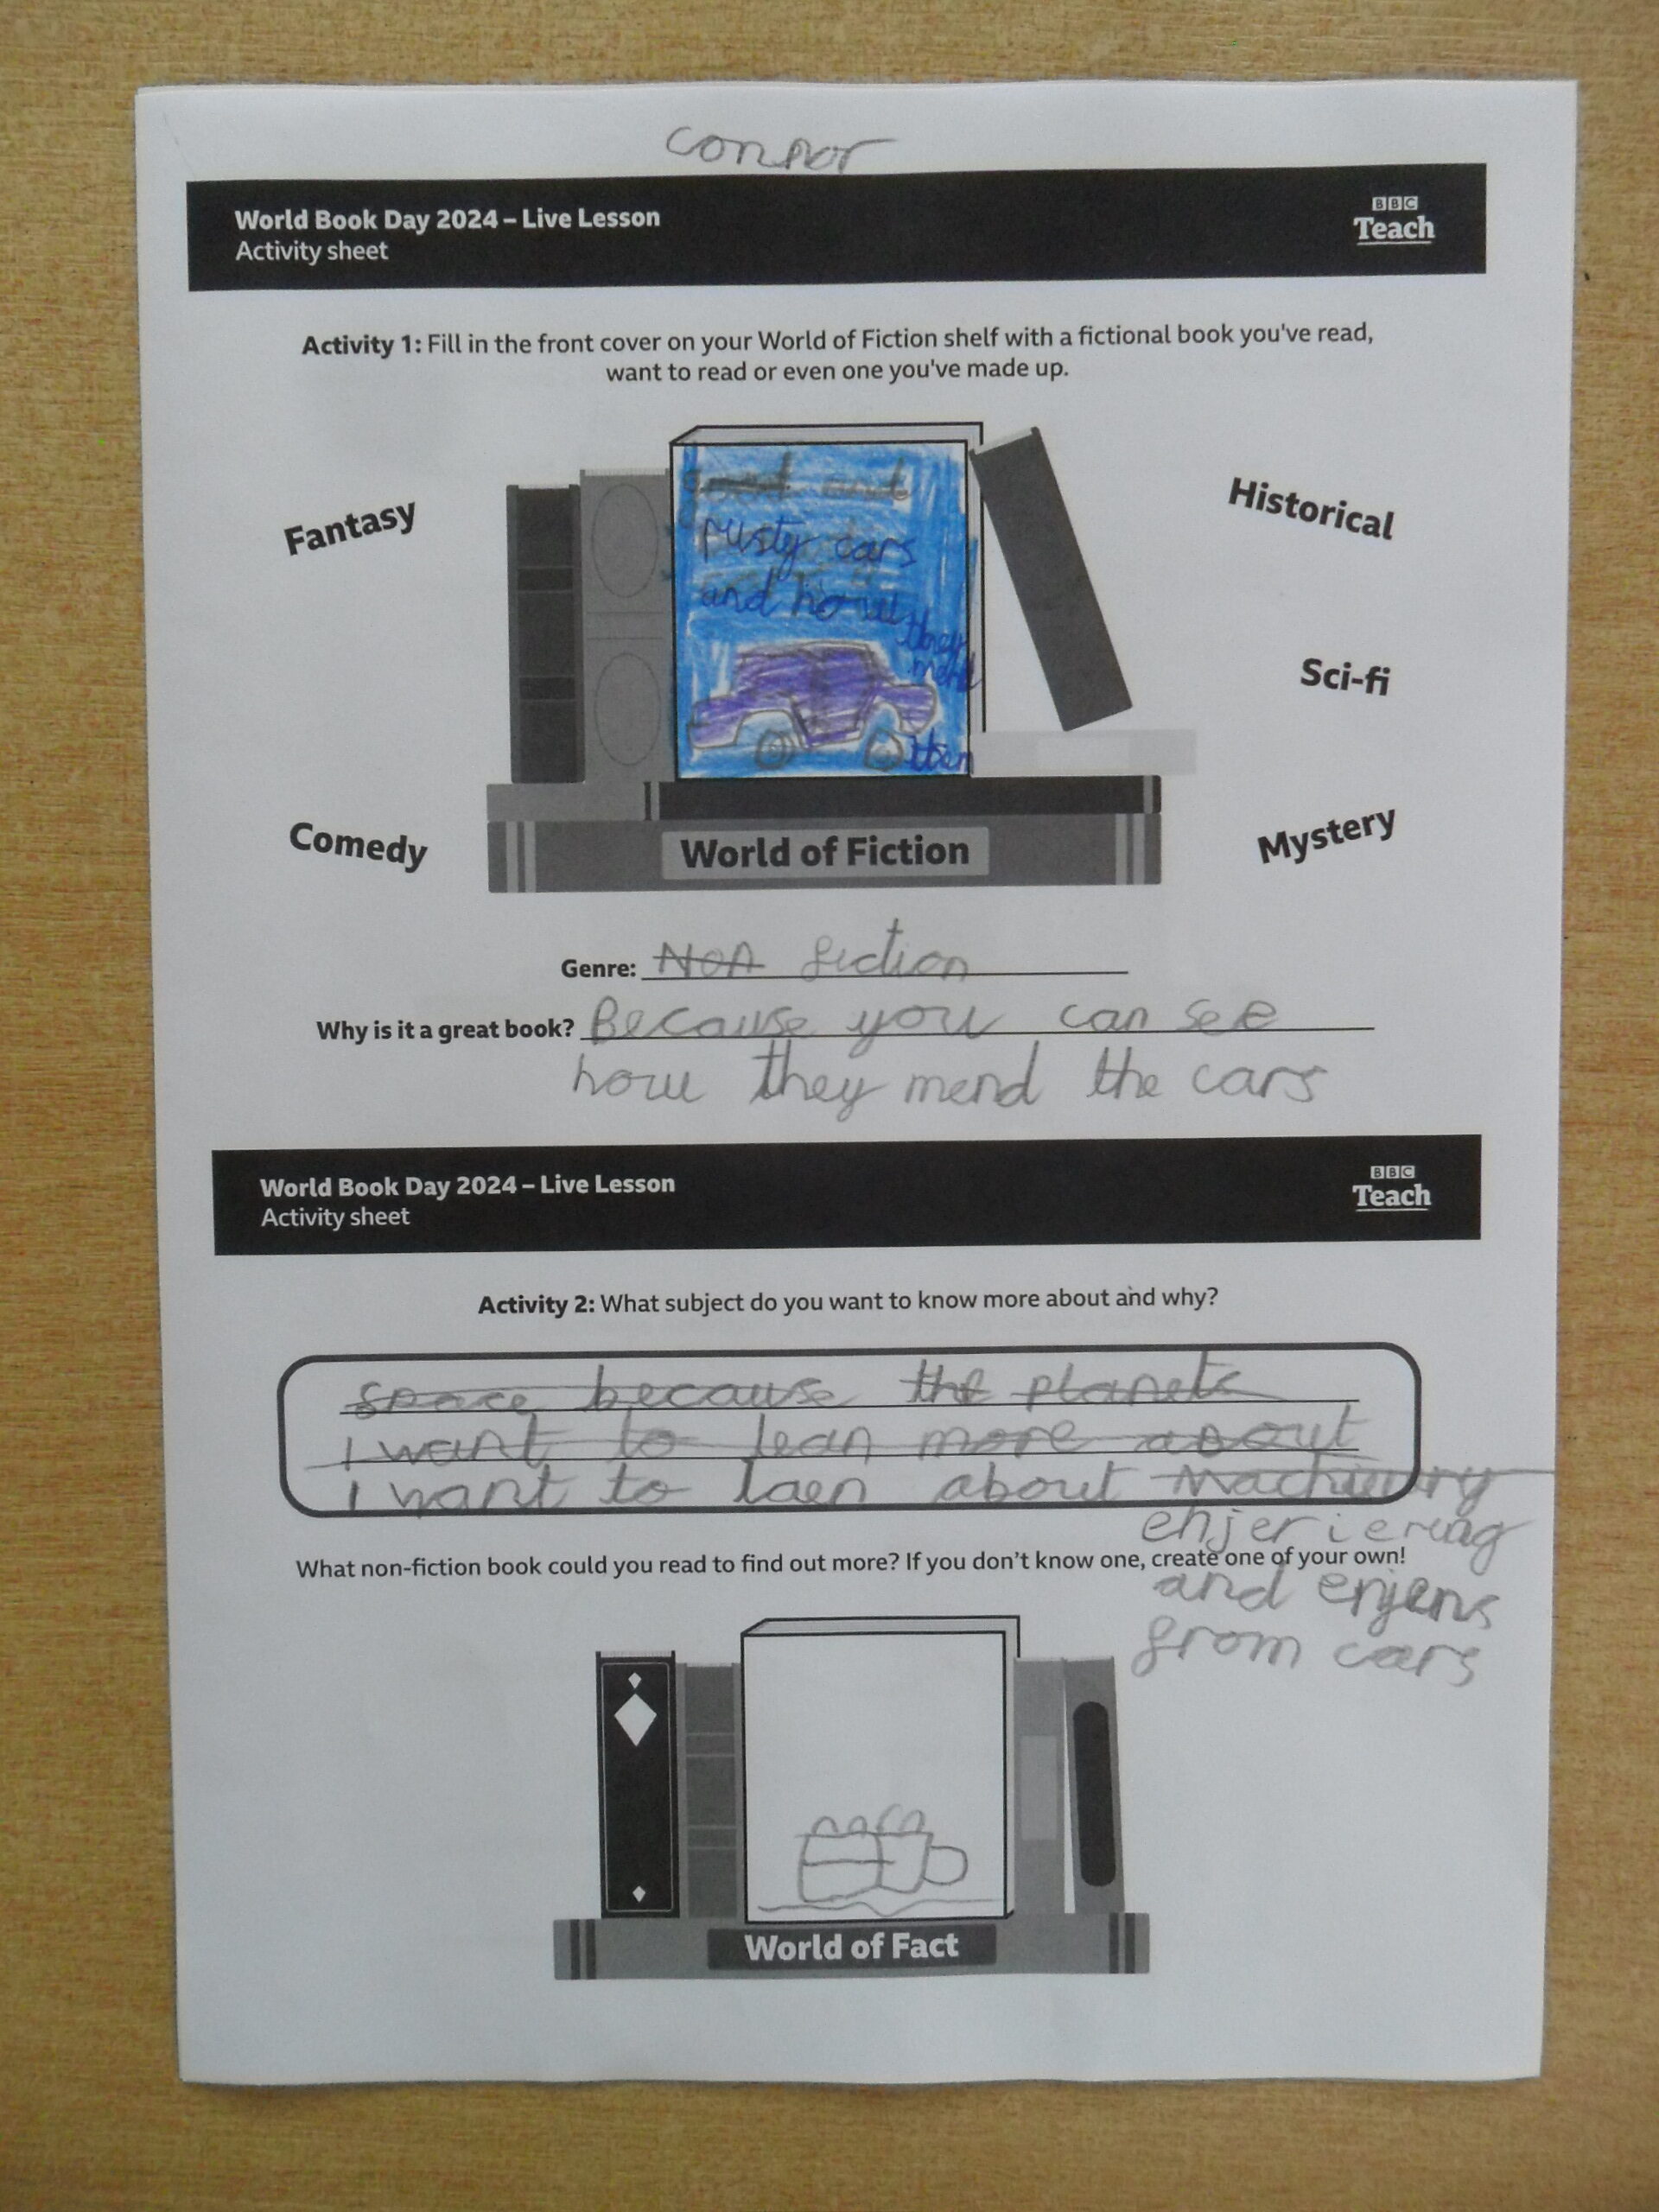 Connor
World Book Day 2024 – Live Lesson
Activity sheet
BBC
Teach
Activity 1: Fill in the front cover on your World of Fiction shelf with a fictional book you've read,
want to read or even one you've made up.
Fantasy
Historical
Sci-fi
Comedy
Mystery
good and
rusty cars
and how
they
mend
them
World of Fiction
Genre: Non fiction
Why is it a great book? Because you can see
how they mend the cars
World Book Day 2024 – Live Lesson
Activity sheet
BBC
Teach
Activity 2: What subject do you want to know more about and why?
space because the planets
I want to lean more about
I want to laen about Machienry
enjeriering
and enjens
from cars
What non-fiction book could you read to find out more? If you don't know one, create one of your own!
World of Fact